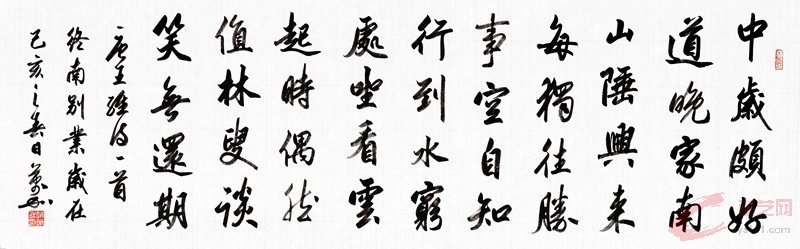 中歲頗好
道晚家南
山陲興来
每獨往勝
事空自知
行到水窮
處坐看雲
起時偶然
值林叟談
笑無還期
唐王維诗一首
终南别業歲在
己亥之春日